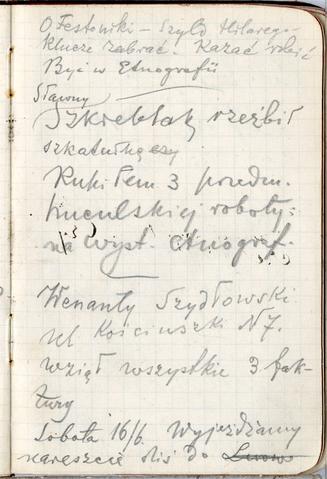 O Festoniki – Szyld Hilarego –
klucze zabrać. Kazać robić
Być w Etnografii
Sławny
Szkreblak rzeźbił
szkatułkę
Kupiłem 3 przedm.
huculskiej roboty:
na wyst. etnograf.
Wenanty Szydłowski
ul Kościuszki N 7.
wziął wszystkie 3 fak-
tury
Sobota 16/6. Wyjeżdżamy
nareszcie dziś do Lwowa